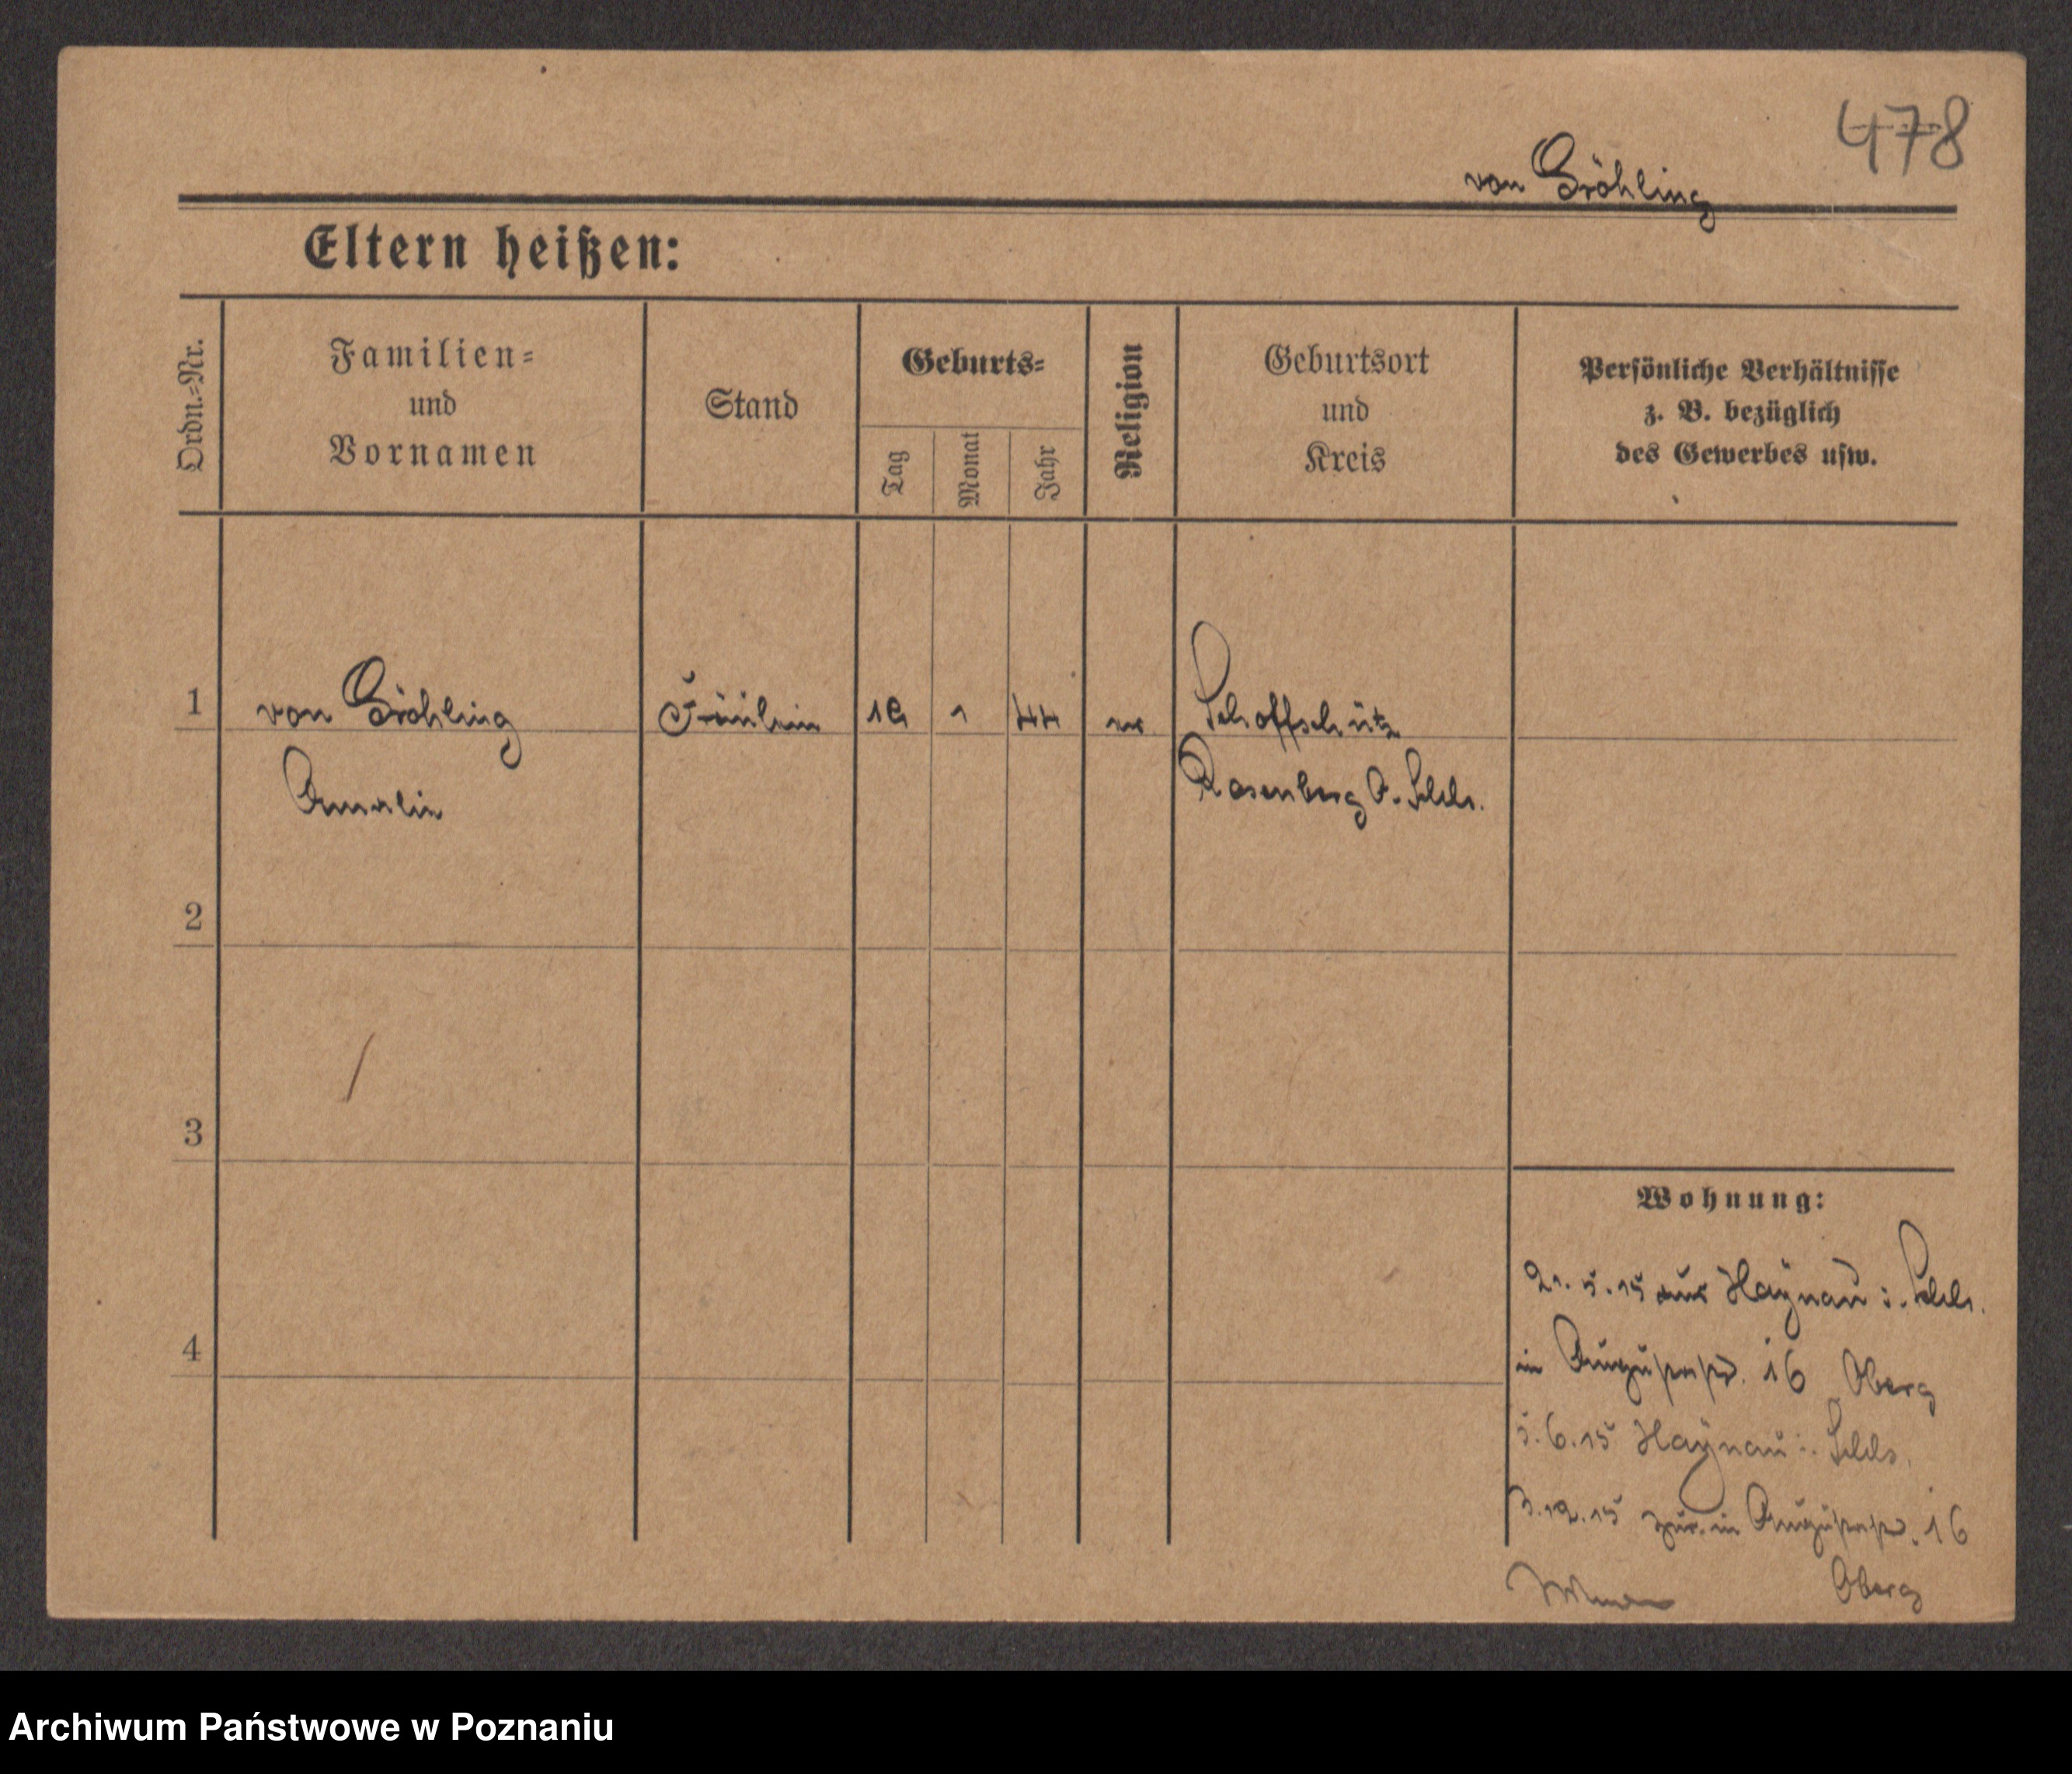 478
von Gröhling
Eltern heißen:
Ordn.=Nr.
Familien=
und
Vornamen
Stand
Geburts=
Tag
Monat
Jahr
Religion
Geburtsort
und
Kreis
Persönliche Verhältnisse
z. B. bezüglich
des Gewerbes usw.
1
von Gröhling
Fräulein
1
44
Schoffschütz
Amalie
Rosenberg O. Schls.
2
3
4
Wohnung:
21. 5. 15 aus Haynau i. Schls.
in Augustastr. 16 Oberg
5. 6. 15 Haynau i. Schls.
3. 12. 15 zur. in Augustastr. 16
Oberg
Archiwum Państwowe w Poznaniu